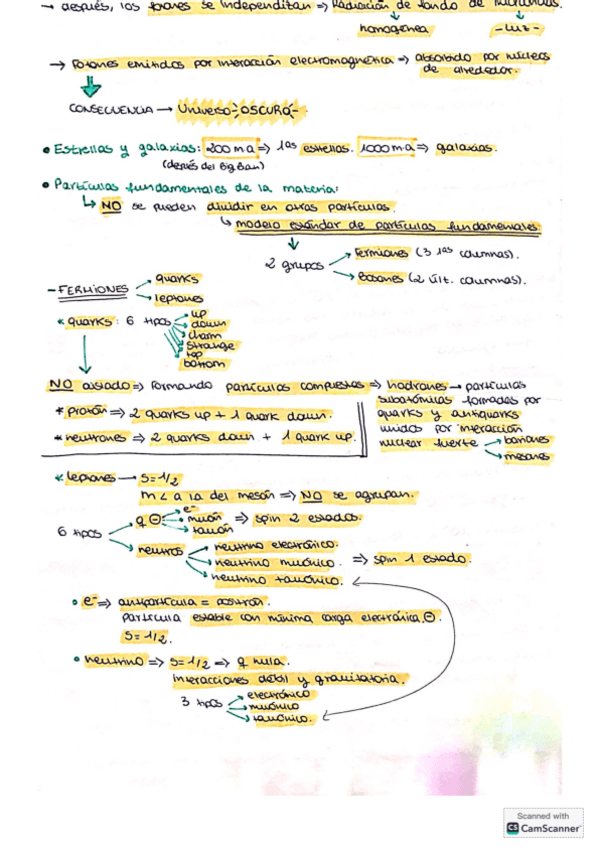 → después, los fotones se independitan => Radiación de fondo de microondas.
homogénea
-luz-
→ Fotones emitidos por interacción electromagnética => absorbido por núcleos
de alrededor.
CONSECUENCIA → Universo -OSCURO-
• Estrellas y galaxias: 200 m.a => 1as estrellas. 1000 m.a => galaxias.
(después del Big Ban)
• Partículas fundamentales de la materia:
↳ NO se pueden dividir en otras partículas.
↳ modelo estándar de partículas fundamentales.
2 grupos
Fermiones (3 1as columnas).
Bosones (2 últ. columnas).
- FERMIONES
quarks
leptones
* quarks: 6 tipos
up
down
charm
strange
top
bottom
NO aislado => Formando partículas compuestas => hadrones → partículas
subatómicas formadas por
* protón => 2 quarks up + 1 quark down.
quarks y antiquarks
unidos por interacción
* neutrones => 2 quarks down + 1 quark up.
nuclear fuerte
bariones
mesones
* leptones → S=1/2
m < a la del mesón => NO se agrupan.
6 tipos
q ⊖
e-
muón => spin 2 estados.
tauón
neutros
neutrino electrónico.
neutrino muónico. => spin 1 estado.
neutrino tauónico.
• e- => antipartícula = positrón.
Partícula estable con mínima carga electrónica ⊖.
S=1/2.
• neutrino => S=1/2 => q nula.
Interacciones débil y gravitatoria.
3 tipos
electrónico
muónico
tauónico.
Scanned with
CS CamScanner